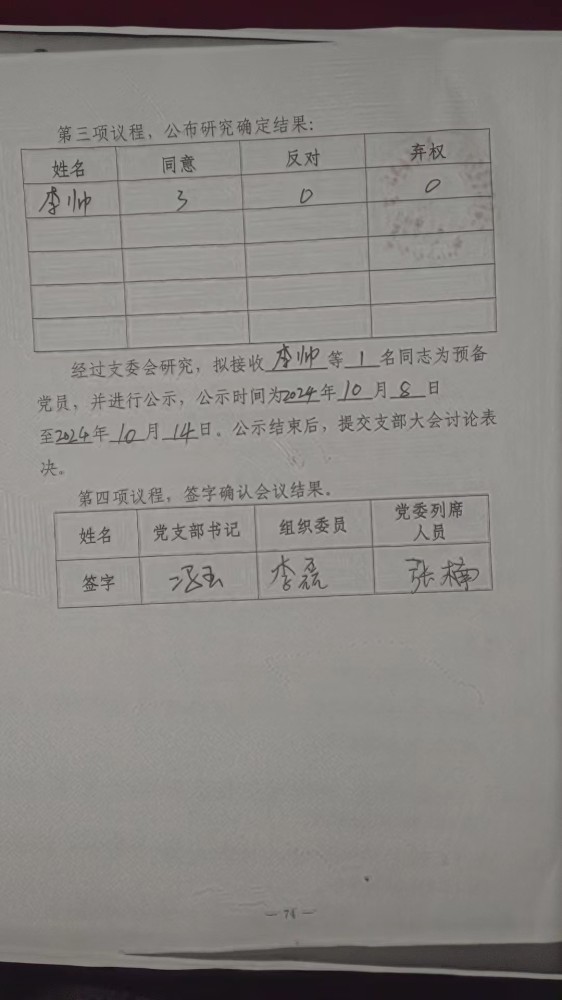 第三项议程，公布研究确定结果：
姓名 同意 反对 弃权
李帅 3 0 0
经过支委会研究，拟接收 李帅 等 1 名同志为预备
党员，并进行公示，公示时间为2024年 10 月 8 日
至2024年 10 月 14 日。公示结束后，提交支部大会讨论表
决。
第四项议程，签字确认会议结果。
姓名 党支部书记 组织委员 党委列席
人员
签字 冯玉 李磊 张楠
— 74 —